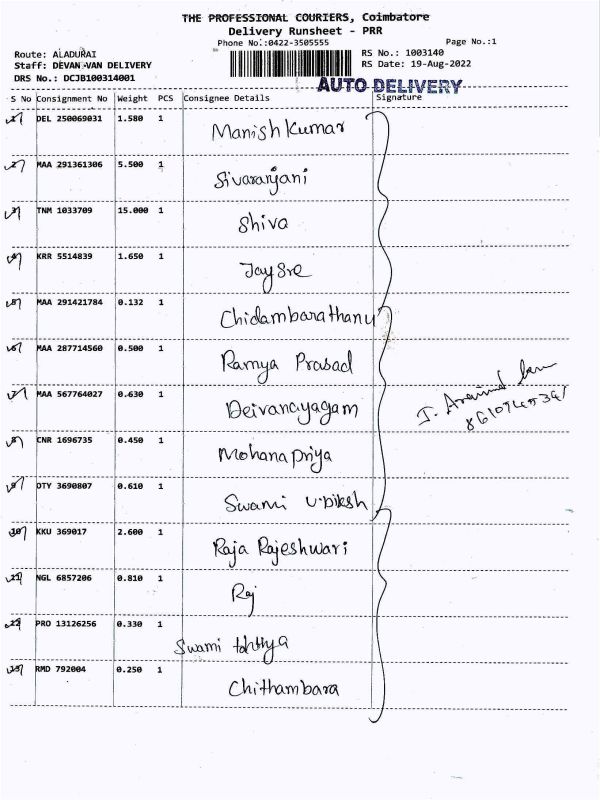 THE PROFESSIONAL COURIERS, Coimbatore
Delivery Runsheet - PRR
Phone No.:0422-3505555 Page No.:1
Route: ALADURAI RS No.: 1003140
Staff: DEVAN-VAN DELIVERY RS Date: 19-Aug-2022
DRS No.: DCJB100314001
AUTO DELIVERY
S No Consignment No Weight PCS Consignee Details Signature
1 DEL 250069031 1.580 1 Manish Kumar
2 MAA 291361306 5.500 1 Sivaranjani
3 TNM 1033709 15.000 1 Shiva
4 KRR 5514839 1.650 1 Jay Sre
5 MAA 291421784 0.132 1 Chidambarathanu
6 MAA 287714560 0.500 1 Ramya Prasad
7 MAA 567764027 0.630 1 Deivanayagam
J.
8 CNR 1696735 0.450 1 Mohana priya
9 OTY 3690807 0.610 1 Swami
10 KKU 369017 2.600 1 Raja Rajeshwari
11 NGL 6857206 0.810 1 Raj
12 PRO 13126256 0.330 1 Swami
13 RMD 792004 0.250 1 Chithambara